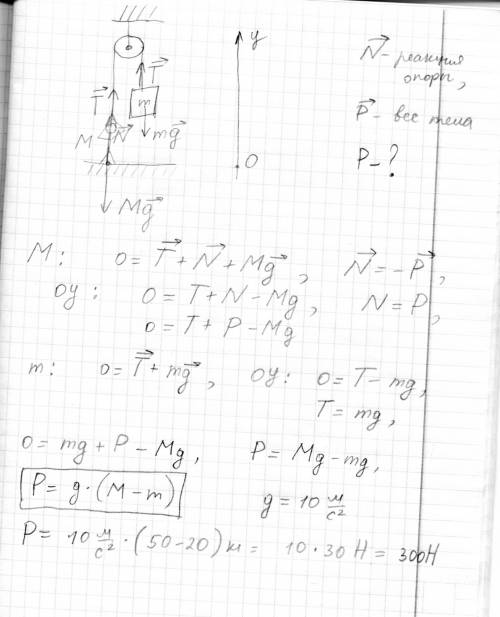 y
N⃗ - реакция опоры,
T⃗
T⃗
m
P⃗ - вес тела
M
N⃗
mg⃗
P - ?
O
Mg⃗
M: 0 = T⃗ + N⃗ + Mg⃗, N⃗ = -P⃗,
OY: 0 = T + N - Mg, N = P,
0 = T + P - Mg
m: 0 = T⃗ + mg⃗, OY: 0 = T - mg,
T = mg,
0 = mg + P - Mg, P = Mg - mg,
P = g·(M - m)
g = 10 м/с²
P = 10 м/с² · (50 - 20) кг = 10 · 30 Н = 300Н